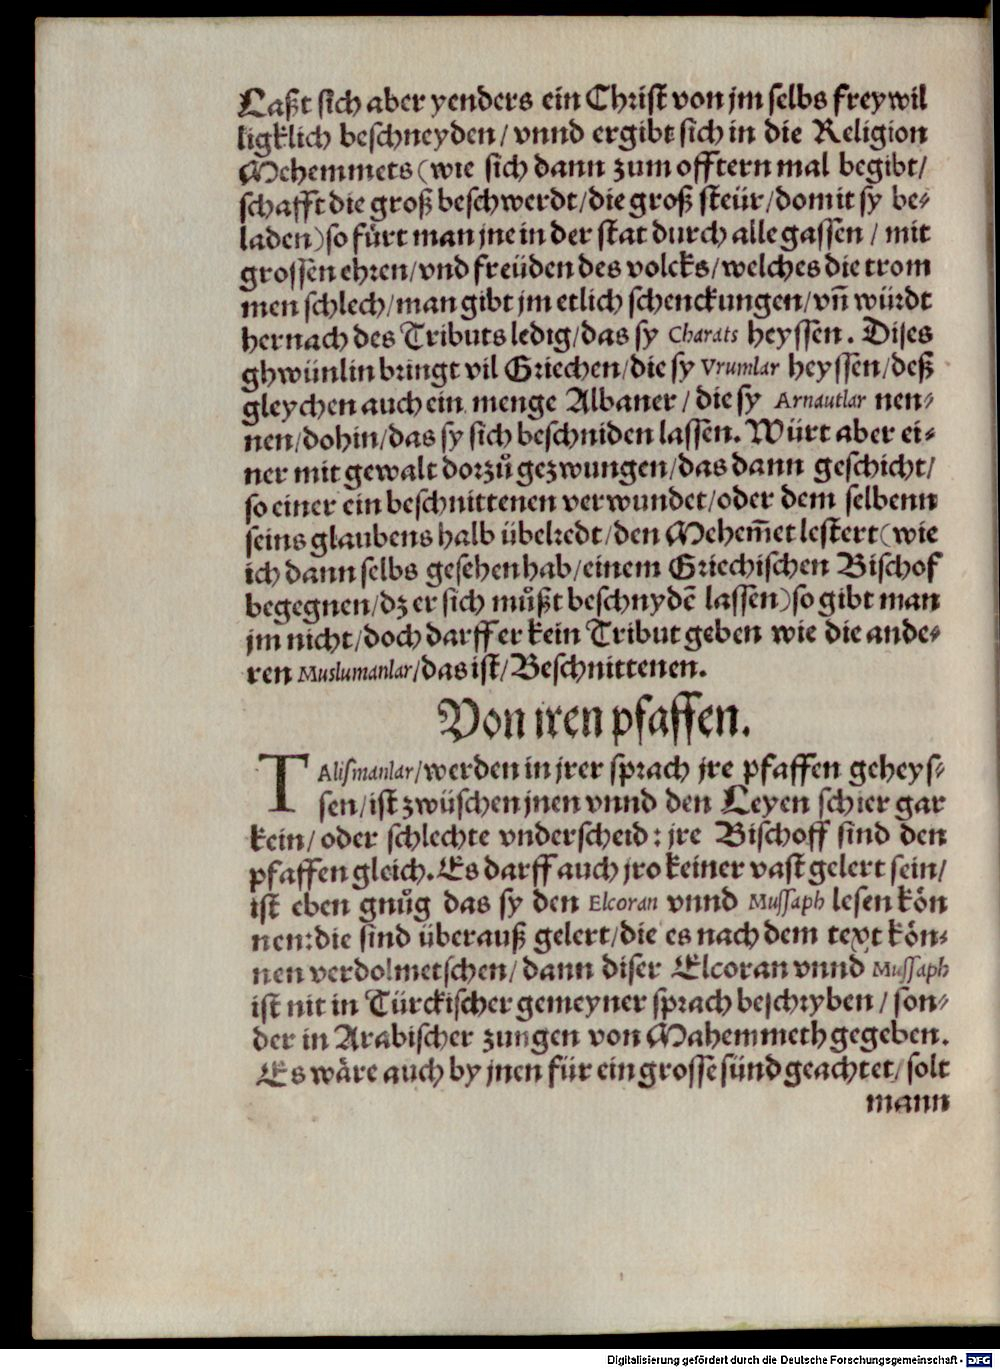 Laßt sich aber yenders ein Christ von jm selbs freywil
ligklich beschneyden / vnnd ergibt sich in die Religion
Mehemmets (wie sich dann zum offtern mal begibt/
schafft die groß beschwerdt/die groß steür/domit sy be⸗
laden)so fürt man jne in der stat durch alle gassen / mit
grossen ehren/vnd freüden des volcks/welches die trom
men schlech/man gibt jm etlich schenckungen/vñ würdt
hernach des Tributs ledig/das sy Charats heyssen. Dises
ghwünlin bringt vil Griechen/die sy Vrumlar heyssen/deß
gleychen auch ein menge Albaner / die sy Arnautlar nen⸗
nen/dohin/das sy sich beschniden lassen. Würt aber ei⸗
ner mit gewalt dorzů gezwungen/das dann geschicht/
so einer ein beschnittenen verwundet/oder dem selbenn
seins glaubens halb übelredt/den Mehem̃et lestert(wie
ich dann selbs gesehen hab/einem Griechischen Bischof
begegnen/dz er sich můßt beschnydẽ lassen)so gibt man
jm nicht/doch darff er kein Tribut geben wie die ande⸗
ren Muslumanlar/das ist/Beschnittenen.
Von iren pfaffen.
TAlismanlar/werden in jrer sprach jre pfaffen geheys⸗
sen/ist zwüschen jnen vnnd den Leyen schier gar
kein/ oder schlechte vnderscheid: jre Bischoff sind den
pfaffen gleich. Es darff auch jro keiner vast gelert sein/
ist eben gnůg das sy den Elcoran vnnd Mussaph lesen kön
nen:die sind überauß gelert/die es nach dem text kön⸗
nen verdolmetschen/ dann diser Elcoran vnnd Mussaph
ist nit in Türckischer gemeyner sprach beschryben / son⸗
der in Arabischer zungen von Mahemmeth gegeben.
Es wäre auch by jnen für ein grosse sünd geachtet/ solt
mann
Digitalisierung gefördert durch die Deutsche Forschungsgemeinschaft - DFG